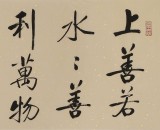 上善若
水〻善
利萬物